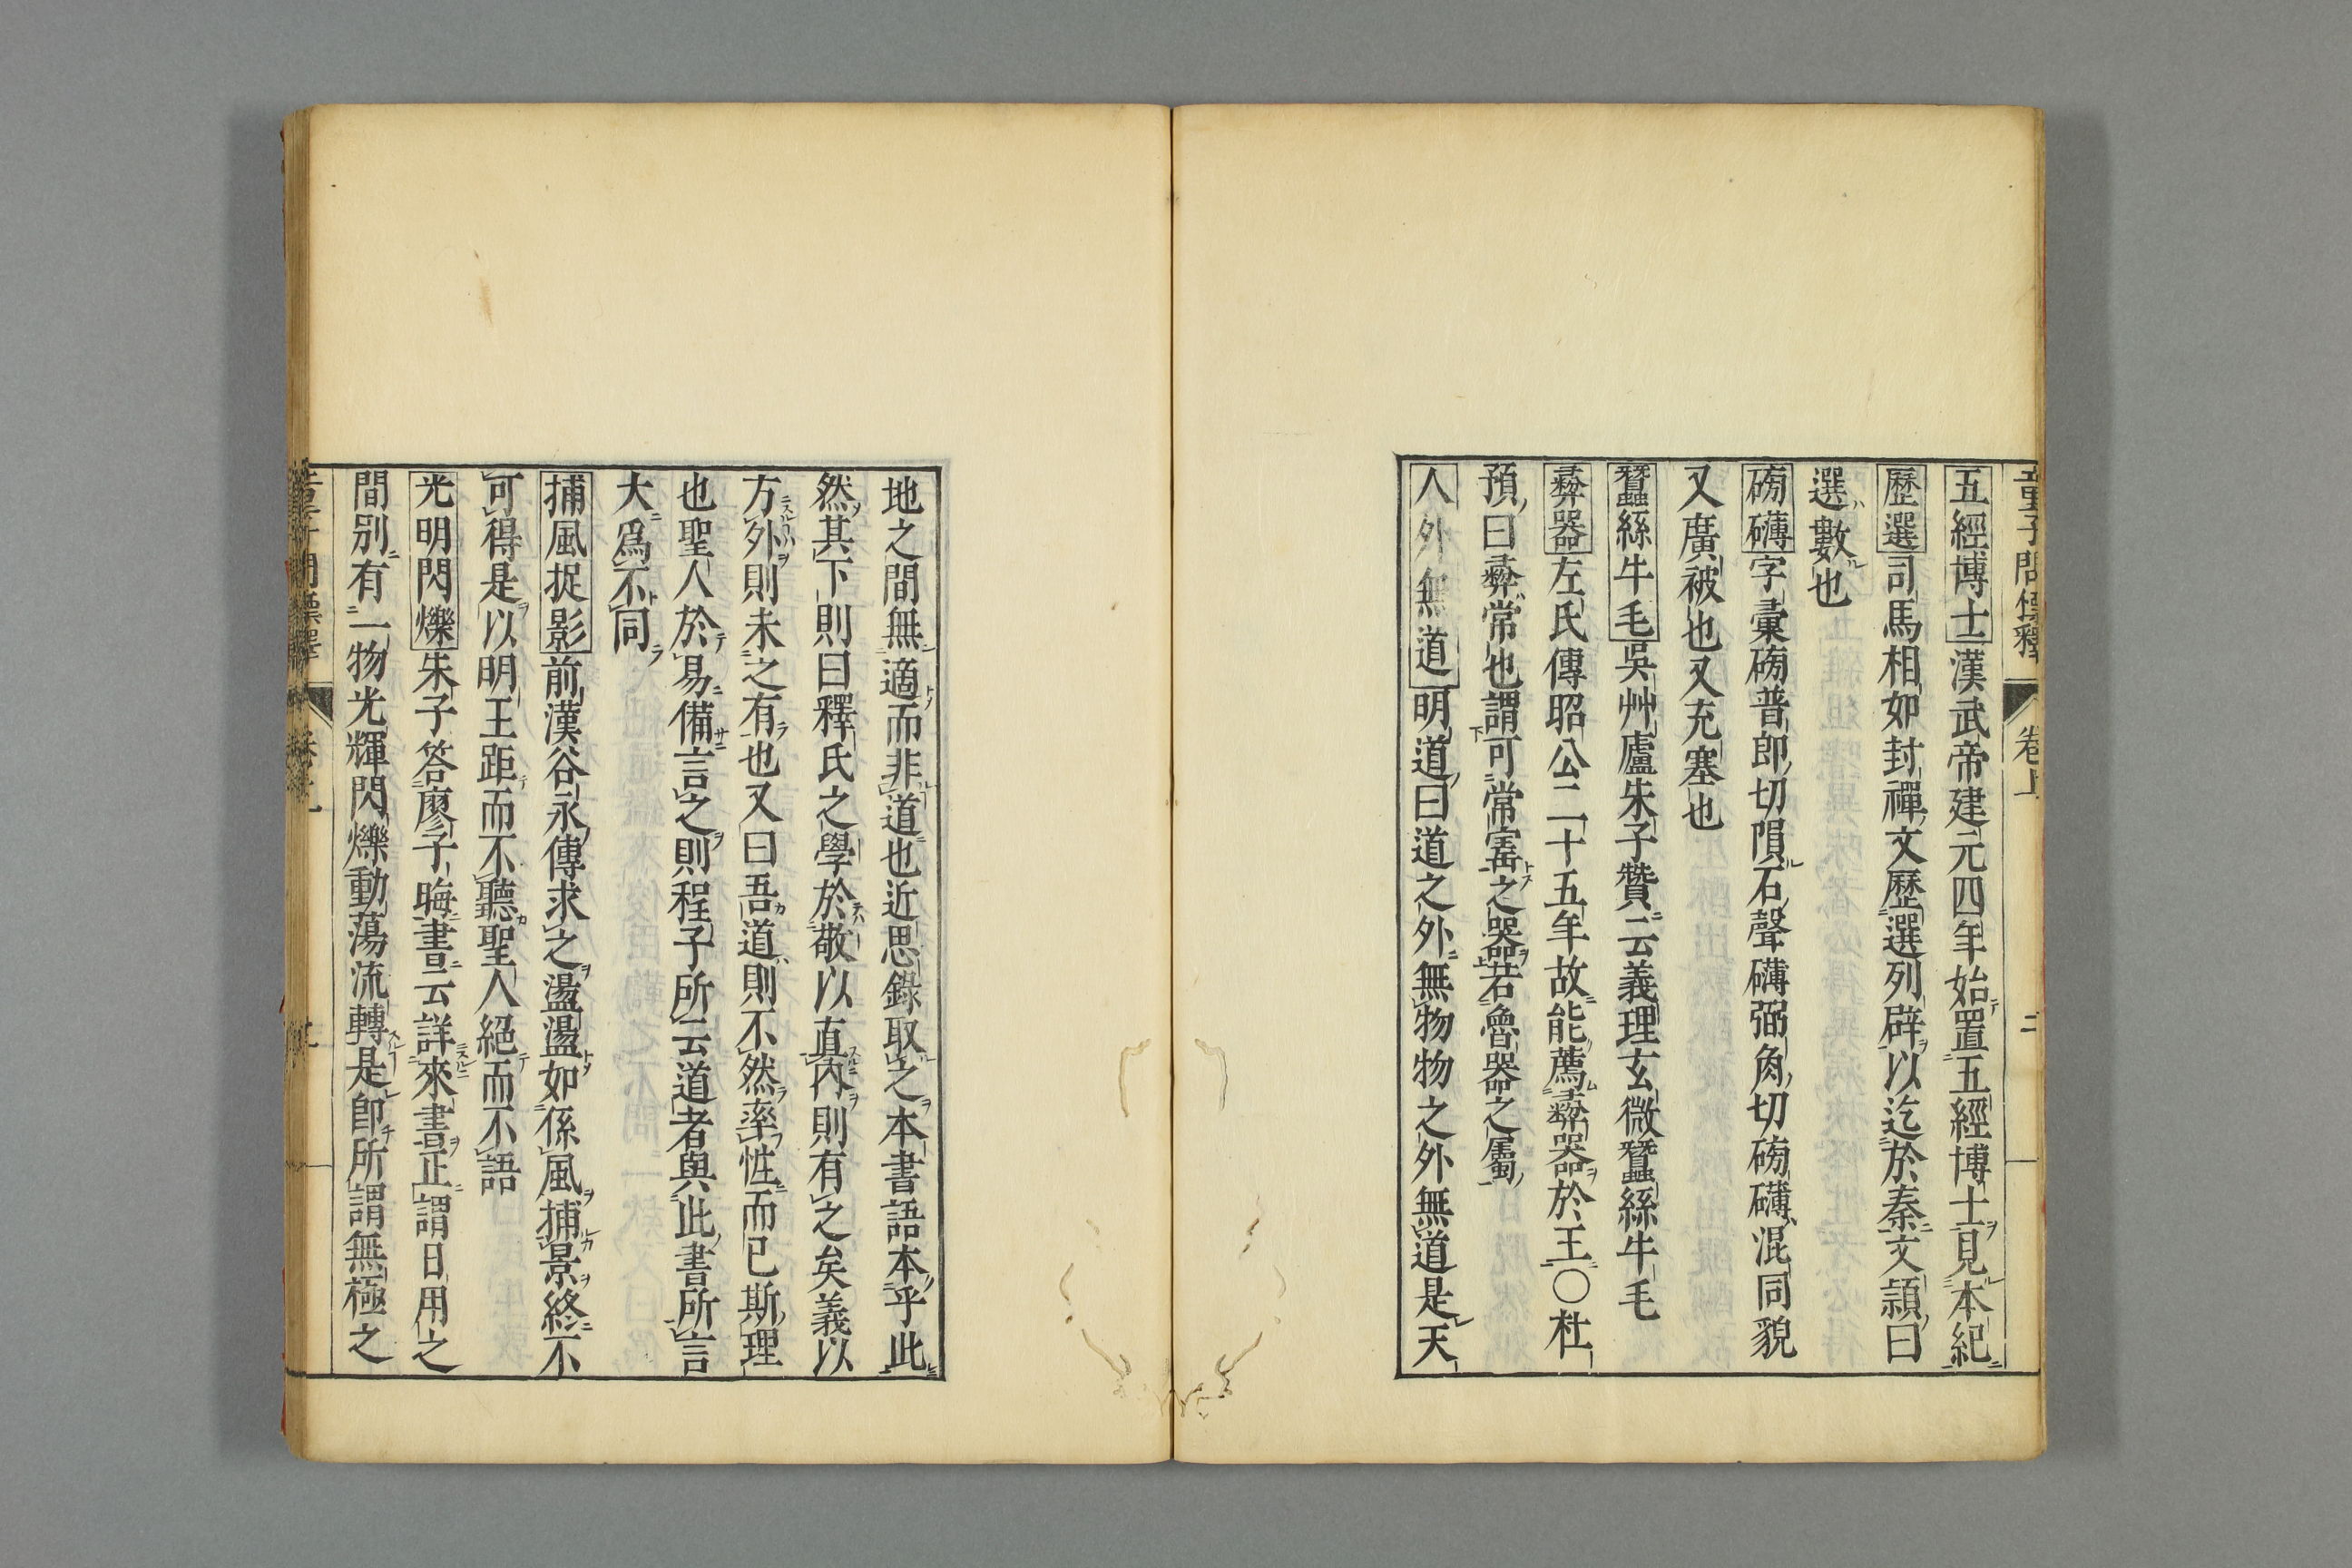 童子問標釋 卷上 二
五經博士漢武帝建元四年始置五經博士見本紀
歷選司馬相如封禪文歷選列辟以迄於秦文頴曰
選數也
磅礴字彙磅普郎切隕石聲礴弼角切磅礴混同貌
又廣被也又充塞也
蠶絲牛毛吳艸廬朱子贊云義理玄微蠶絲牛毛
彝器左氏傳昭公二十五年故能薦彝器於王〇杜
預曰彝常也謂可常寳之器若魯器之屬
人外無道明道曰道之外無物物之外無道是天
地之間無適而非道也近思錄取之本書語本乎此
然其下則曰釋氏之學於敬以直內則有之矣義以
方外則未之有也又曰吾道則不然率性而已斯理
也聖人於易備言之則程子所云道者與此書所言
大爲不同
捕風捉影前漢谷永傳求之盪盪如係風捕景終不
可得是以明王距而不聽聖人絕而不語
光明閃爍朱子答廖子晦書云詳來書正謂日用之
間別有一物光輝閃爍動蕩流轉是卽所謂無極之
童子問標釋